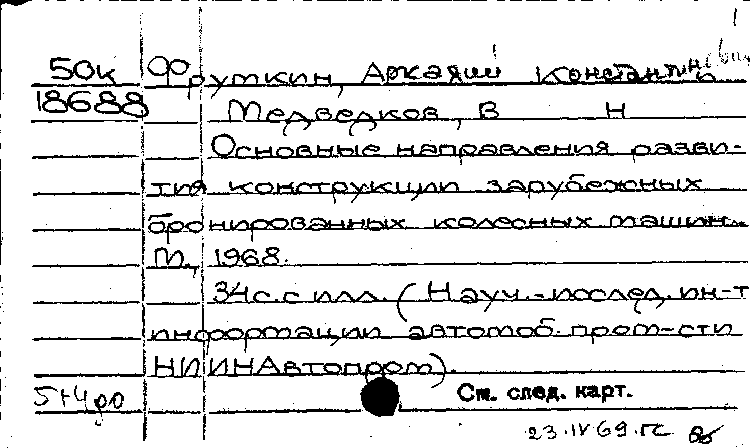 1
50к Фрумкин, Аркадий Константинович
18688 Медведков, В Н
Основные направления разви-
тия конструкции зарубежных
бронированных колесных машин.
М., 1968.
34 с. с илл. (Науч.-исслед. ин-т
информации автомоб. пром-сти
НИИНАвтопром).
См. след. карт.
23.IV 69.